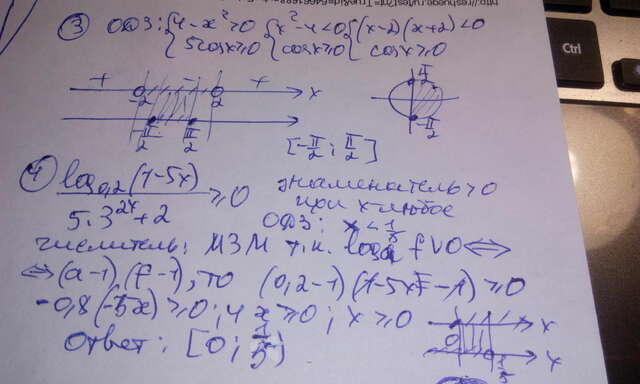 ③ ОДЗ: {4-x²>0 {x²-4<0 {(x-2)(x+2)<0
{5cosx≥0 {cosx≥0 {cosx≥0
+ - +
-2 2 x
-π/2 π/2
π/2
-π/2
[-π/2; π/2]
④ log₀,₂(1-5x) / 5·3^2x+2 ≥0
знаменатель>0
при x-любое
ОДЗ: x<1/5
числитель: МЗМ т.к. logₐ f V 0 ⇔
⇔ (a-1)(f-1), то (0,2-1)(1-5x-1)≥0
-0,8(-5x)≥0; 4x≥0; x≥0
0 x
1/5 x
Ответ: [0; 1/5)
Ctrl